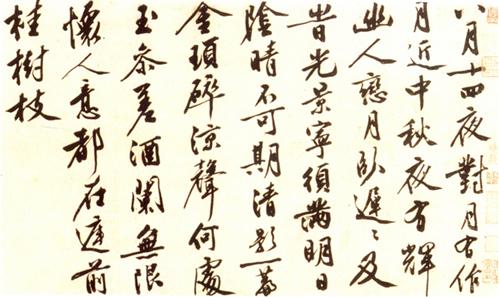 八月十四夜對月有作
月近中秋夜有輝
幽人戀月臥遲〻及
旹光景寧須滿明日
陰晴不可期清影一簾
金瑣碎涼聲何處
玉參差酒闌無限
懷人意都在庭前
桂樹枝